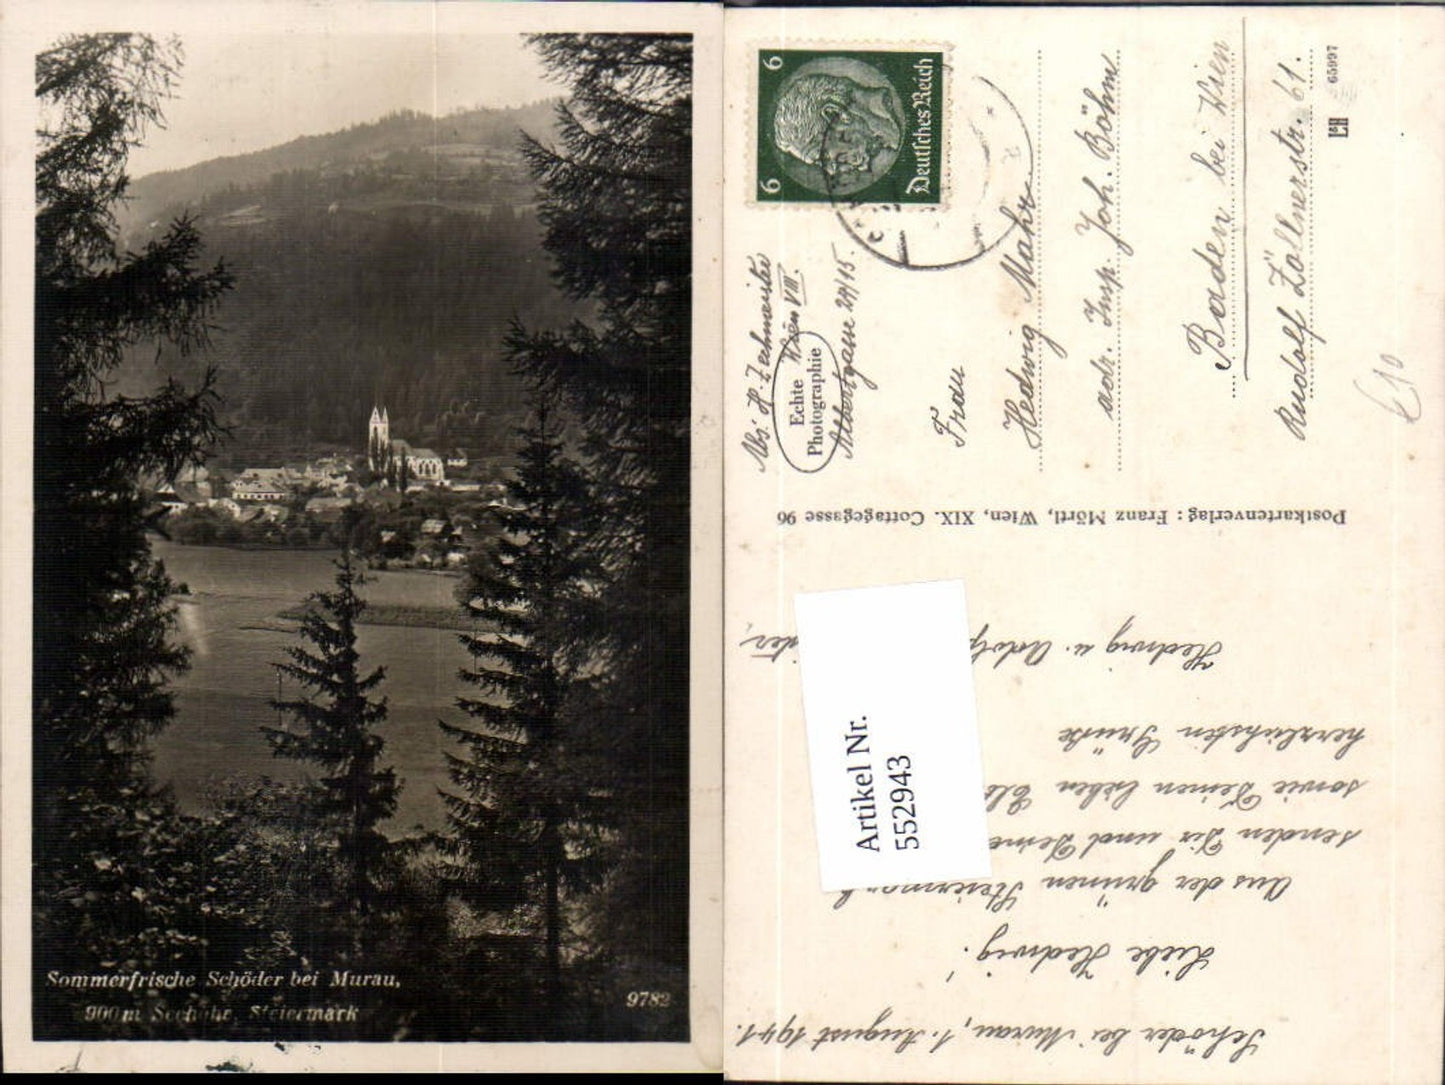 Sommerfrische Schöder bei Murau,
900 m Seehöhe, Steiermark
9782
6 6
Deutsches Reich
Abs: H. Zechmeister
Wien VIII.
Albertgasse 24/15.
Echte
Photographie
Frau
Hedwig Mahr
adr. Insp. Joh. Böhm
Baden bei Wien
Rudolf Zöllnerstr. 61.
L&H 65997
€10
Postkartenverlag: Franz Mörtl, Wien, XIX. Cottagegasse 96
Schöder bei Murau, 1. August 1941.
Liebe Hedwig!
Aus der grünen Steiermark
senden Dir und Deine
sowie Deinen lieben
herzlichsten Grüße
Hedwig u. Adolf
Artikel Nr.
552943